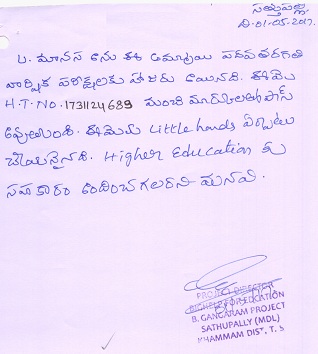 సత్తుపల్లి
ది-01-05-2017.
మానస అను ఈ అమ్మాయి పదవతరగతి
వార్షిక పరీక్షలకు హాజరు అయినది. ఈమె
H.T.NO. 1731124689 మంచి మార్కులతో పాస్
అవుతుంది. ఈమెకు Little hands ఏర్పాటు
Higher Education కు
సహకారం అందించగలరని మనవి.
PROJECT DIRECTOR
EDUCATION
B. GANGARAM PROJECT
SATHUPALLY (MDL)
KHAMMAM DIST, T.S